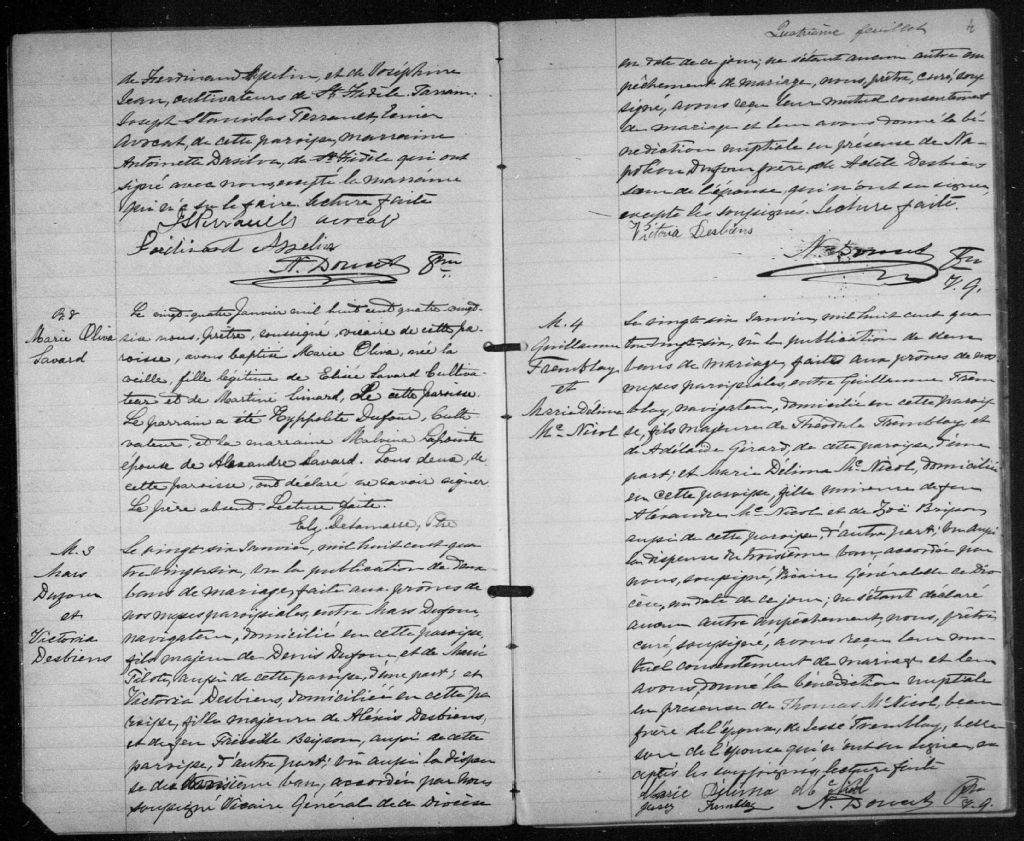 de Ferdinand Asselin, et de Joséphine
Jean, cultivateurs de St. Fidèle. Parrain:
Joseph Stanislas Perrault, Ecuier
avocat, de cette paroisse, marraine
Antoinette Dasilva, de St. Fidèle qui ont
signé avec nous, excepté la marraine
qui n'a su le faire. Lecture faite
JSPerrault avocat
Ferdinand Asselin
A. Doucet Ptre
B. 8
Marie Oliva
Savard
Le vingt-quatre Janvier mil huit cent quatre-vingt-
six nous, prêtre, soussigné, vicaire de cette pa-
roisse, avons baptisé Marie Oliva, née la
veille, fille légitime de Elisée Savard Cultiva-
teur et de Martine Simard, de cette paroisse.
Le parrain a été Hyppolite Dufour, Culti-
vateur, et la marraine Malvina Lapointe
épouse de Alexandre Savard. Tous deux, de
cette paroisse, ont déclaré ne savoir signer
Le père absent. Lecture faite.
Elz. Delamarre, Ptre
M. 3
Mars
Dufour
et
Victoria
Desbiens
Le vingt-six Janvier, mil huit cent qua-
tre vingt-six, vu la publication de deux
bans de mariage, faite aux prônes de
nos messes paroissiales, entre Mars Dufour,
navigateur, domicilié en cette paroisse,
fils majeur de Denis Dufour, et de Marie
Pilote, aussi de cette paroisse, d'une part; et
Victoria Desbiens, domiciliée en cette pa-
roisse, fille majeure de Alexis Desbiens,
et de feu Boisson, aussi de cette
paroisse, d'autre part; vu aussi la dispen-
se du troisième ban, accordée par nous
soussigné Vicaire Général de ce Diocèse
Quatrième feuillet 4
en date de ce jour; ne s'étant aucun autre em-
pêchement de mariage, nous, prêtre, curé, sous-
signé, avons reçu leur mutuel consentement
de mariage et leur avons donné la bé-
nédiction nuptiale en présence de Na-
poléon Dufour frère, de Adèle Desbiens
soeur de l'épouse, qui n'ont su signer,
excepté les soussignés. Lecture faite.
Victoria Desbiens
A. Doucet Ptre
V. G.
M. 4
Guillaume
Tremblay
et
Marie Délima
Mc Nicol
Le vingt-six Janvier, mil huit cent qua-
tre-vingt-six, vu la publication de deux
bans de mariage, faite aux prônes de nos
messes paroissiales, entre Guillaume Trem-
blay, navigateur, domicilié en cette parois-
se, fils majeur de Théodule Tremblay et
de Adélaïde Girard, de cette paroisse, d'une
part; et Marie Délima Mc Nicol, domiciliée
en cette paroisse, fille mineure de feu
Alexandre Mc Nicol et de Zoé Boisson
aussi de cette paroisse, d'autre part; vu aussi
la dispense du troisième ban, accordée par
nous, soussigné, Vicaire Général de ce Dio-
cèse, en date de ce jour; ne s'étant déclaré
aucun autre empêchement, nous, prêtre,
curé, soussigné, avons reçu leur mu-
tuel consentement de mariage et leur
avons donné la bénédiction nuptiale
en présence de Thomas Mc Nicol, beau
frère de l'époux, de Jessé Tremblay, belle
soeur de l'épouse qui n'ont su signer, ex-
ceptés les soussignés, lecture faite
Marie Délima Mc Nicol
Jessey Tremblay A. Doucet Ptre
V. G.